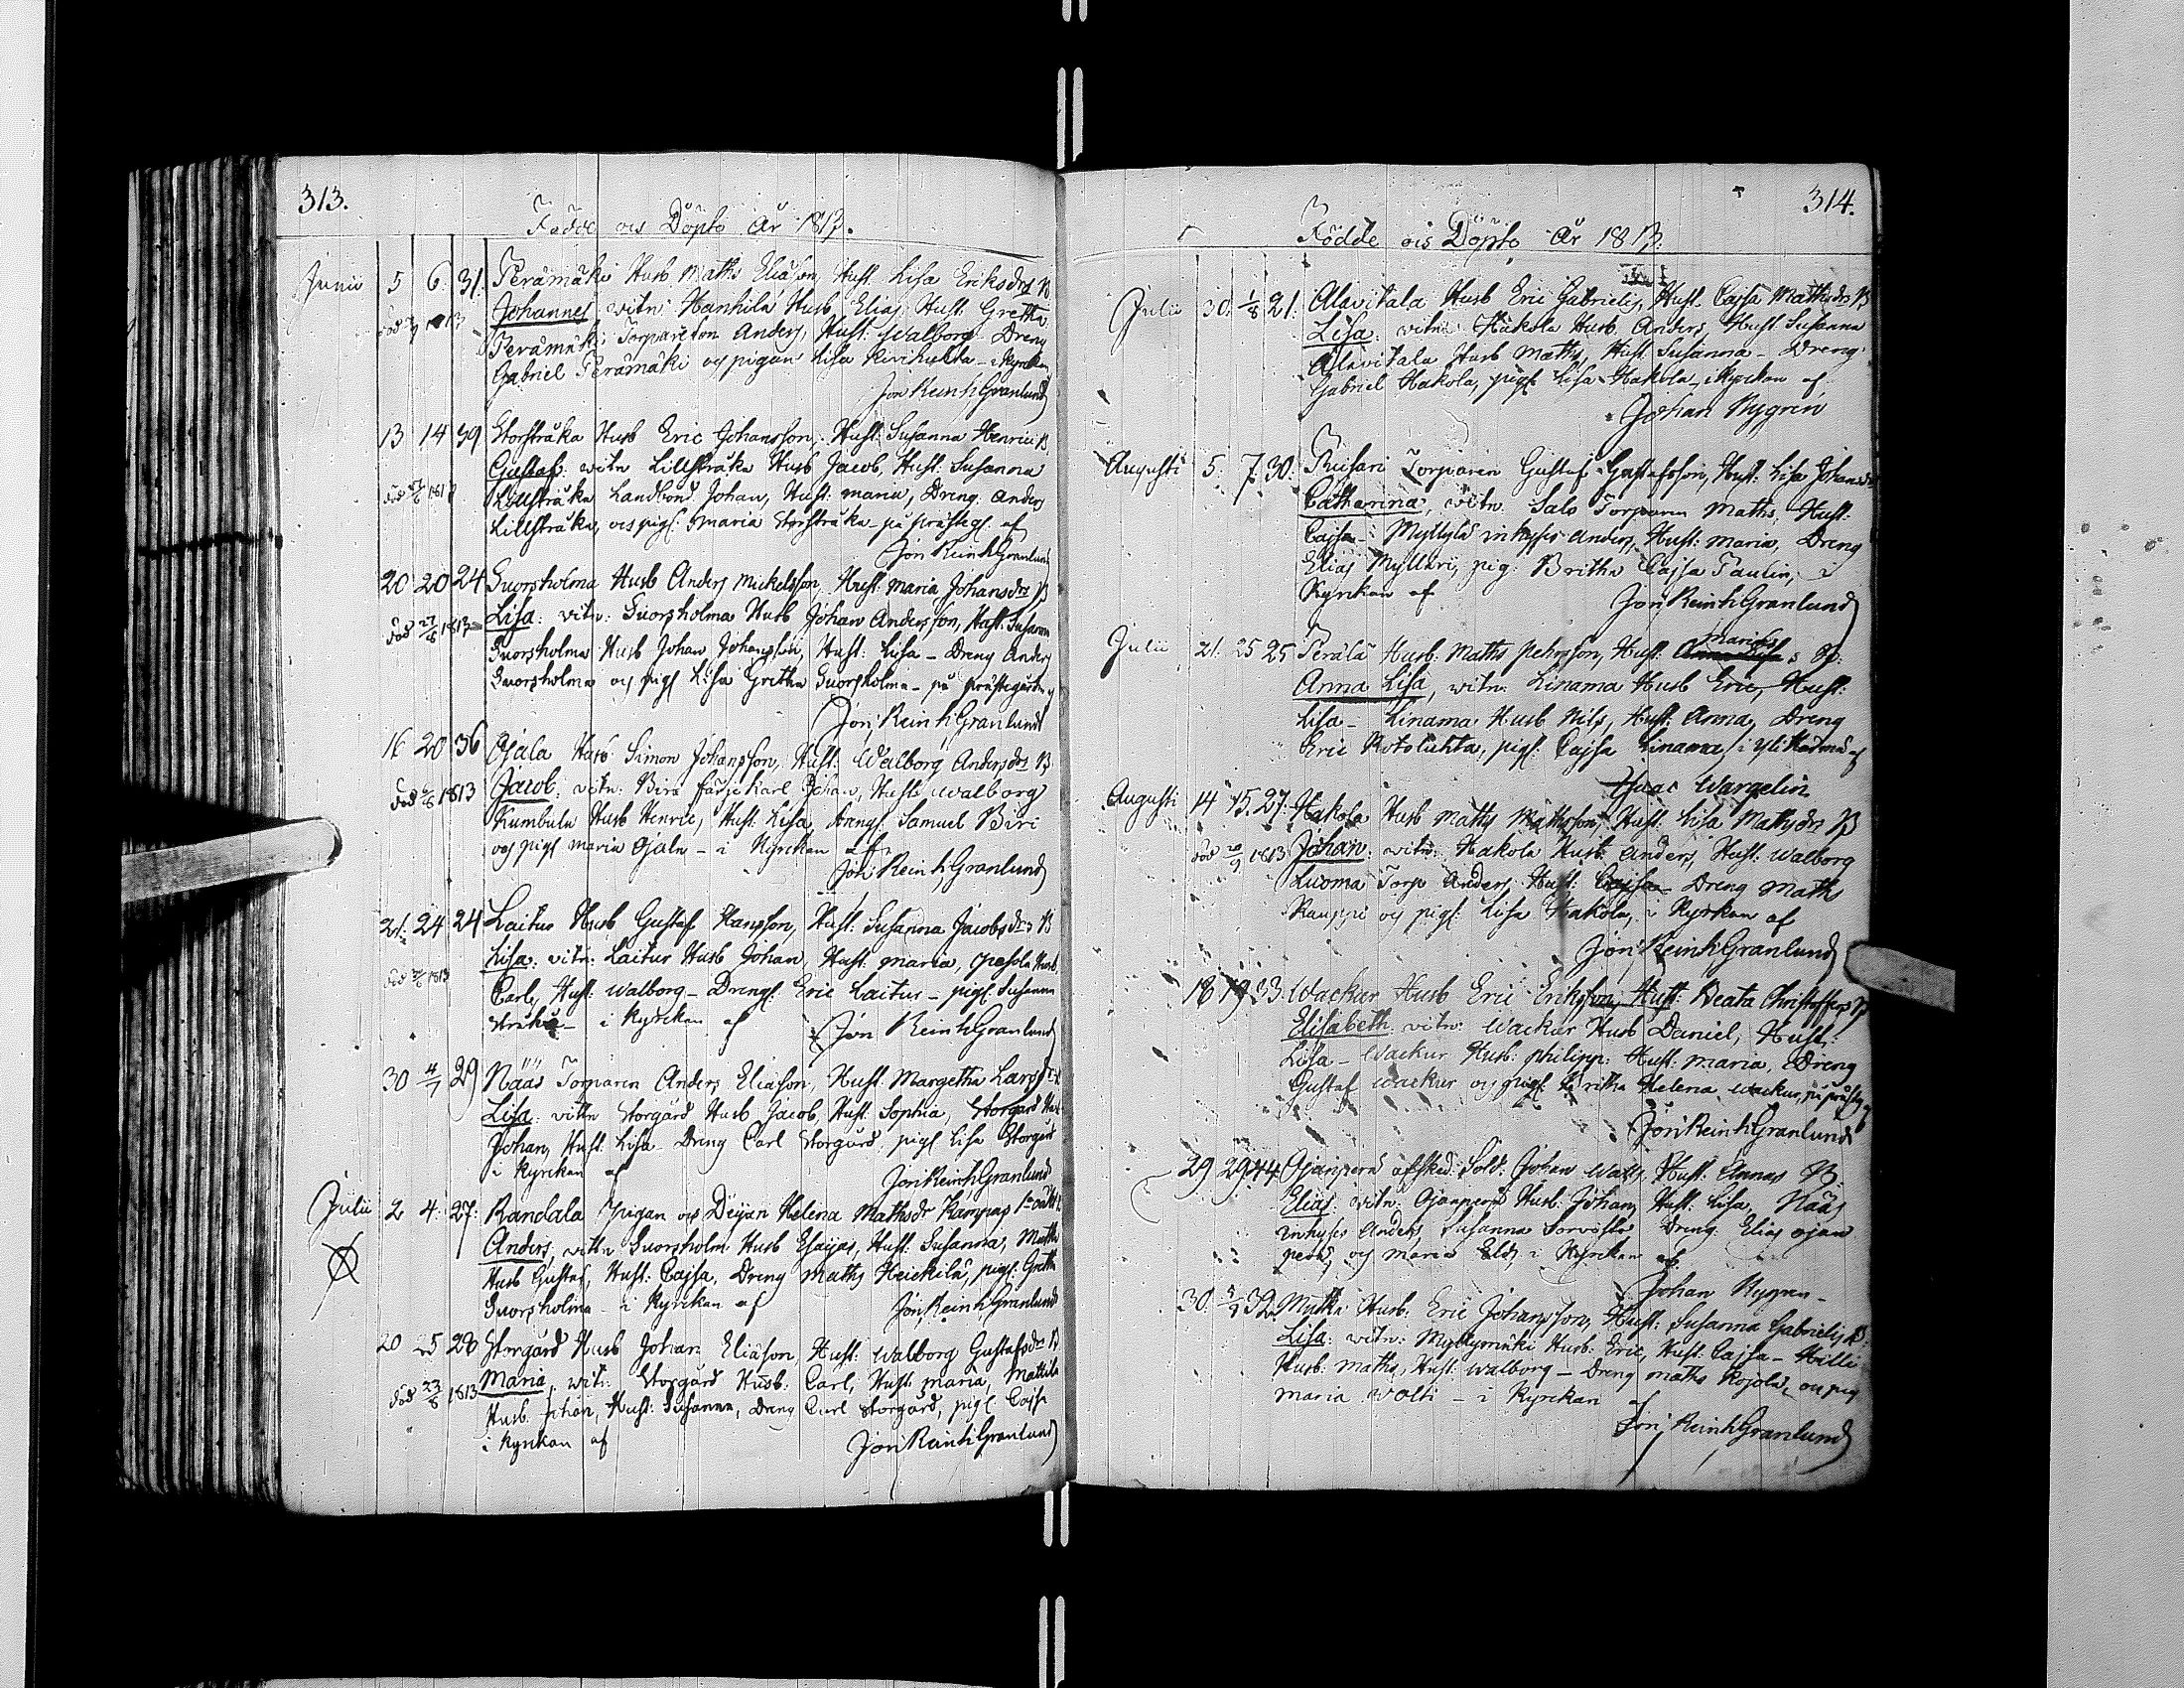 313.
Födde och Döpte År 1813.
Junii 5 6 31. Perämäki Husb Maths Eliason, Hust. Lisa Eriksdrs B
Johannes witn Hanhila Husb Elias, Hust Gretha
Död 1813
Perämäki Torpareson Anders, Hust. Walborg Dreng
Gabriel Perämäki och pigan Lisa i Kyrckan
Joh Reinh Granlund
13 14 39 Storstråka Husb Eric Johansson, Hust: Susanna Henrics B
Gustaf: witn Lillstråka Husb Jacob, Hust: Susanna
Lillstråka Landbond Johan, Hust: maria, Dreng: anders
Lillstråka, och pigs: maria Storstråka på prästeg: af
Joh Reinh Granlund
20 20 24 Suorsholma Husb Anders Mickelsson, Hust: maria Johansdrs B
Död 27/6 1813 Lisa: witn: Suorsholma Husb Johan Andersson, Hust. Susanna
Suorsholma Husb Johan Johansson, Hust: Lisa - Dreng Anders
Suorsholma och pigs Lisa Gretha Suorsholma - på prästegården
Joh Reinh Granlund
16 20 36 Ojala Husb Simon Johansson, Hust: Walborg Andersdrs B
Död 1813 Jacob: witn: Biri färjekarl Johan, Hust: walborg
Kumbula Husb Henric, Hust: Lisa, drengs: Samuel Biri
och pigs maria Ojala - i Kyrckan af
Joh Reinh Granlund
21. 24 24 Laitus Husb Gustaf Hansson, Hust: Susanna Jacobsdrs B
Lisa: witn: Laitus Husb Johan, Hust: maria, Pesola Husb
Död 1813
Carl, Hust: walborg - Drengs: Eric Laitus - pigs: Susanna
Stråka - i kyrckan af Joh Reinh Granlund
30 4/7 29 Nääs Torparen Anders Eliason, Hust: Margetha Larsdr
Lisa: witn Storgård Husb Jacob, Hust. Sophia, Storgård Husb
Johan, Hust. Lisa - Dreng Carl Storgård, pigs Lisa Storgård
i kyrckan af Joh Reinh Granlund
Julii 2 4. 27. Randala Pigan och Deijan Helena Mathsdr
Anders, witn Suorsholm Husb Esaijas, Hust: Susanna,
Husb Gustaf, Hust: Cajsa, Dreng Maths Heickilä, pigs: Gretha
Suorsholma - i Kyrckan af Joh Reinh Granlund
20 25 28 Storgård Husb Johan Eliason, Hust: walborg Gustafsdr B
Död 23/8 1813 Maria, witn: Storgård Husb: Carl, Hust: maria, Mattila
Husb. Johan, Hust: Susanna, Dreng Carl Storgård, pigs Cajsa
i kyrckan af Joh Reinh Granlund
314.
Födde och Döpte År 1813.
Julii 30. 1/8 21. Alavitala Husb Eric Gabriels, Hust. Cajsa Mathsdrs B
Lisa: witn: Hakola Husb Anders, Hust Susanna
Alavitala Husb Maths, Hust. Susanna - Dreng
Gabriel Hakola, pigs Lisa Hakola - i Kyrckan af
Johan Nygren
Augusti 5. 7. 30. Ruisari Torparen Gustaf Gustafsson, Hust: Lisa Johansdr
Catharina, witn. Salo Torparen Maths, Hust:
Cajsa - Myllylä inhyses Anders, Hust: maria, Dreng
Elias Mylläri, pig: Britha Cajsa Paulin, i
Kyrckan af Joh Reinh Granlund
Julii 21. 25 25 Perälä Husb: Maths Pehrsson, Hust: marias B:
Anna Lisa, witn: Linama Husb Eric, Hust:
Lisa - Linama Husb Nils, Hust: Anna, Dreng
Eric Kotoluhta, pigs: Cajsa Linama, i yli Hadma af
Isaac Wargelin
Augusti 14 15. 27. Hakola Husb maths Mathsson, Hust: Lisa Mathsdrs B
Död 20/9 1813 Johan: witn: Hakola Husb: Anders, Hust: walborg
Luoma Torp Anders Hust: Cajsa - Dreng Maths
Kauppi och pigs: Lisa Hakola, i kyrckan af
Joh Reinh Granlund
18 19 33. Wackur Husb Eric Eriksson, Hust: Beata Christoffers B
Elisabeth: witn: Wackur Husb Daniel, Hust:
Lisa - Wackur Husb: Philipp: Hust: maria, Dreng
Gustaf Wackur och pigs: Helena Wackur, på prästeg af
Joh Reinh Granlund
29 29 44 Ojanperä afsked: Sold: Johan Walls, Hust: Annas B:
Elias: witn: Ojanperä Husb: Johan, Hust: Lisa, Nääs
inhyses Anders, Susanna Dreng Elias Ojan
perä, och maria Eld, i Kyrckan af.
Johan Nygren -
30. 5/9 32. Myllä Husb. Eric Johansson, Hust: Susanna Gabriels B:
Lisa: witn: Myllymäki Husb: Eric, Hust: Cajsa - Hilli
Husb. maths, Hust: walborg - Dreng maths Kojola, och pig
maria Wolti - i Kyrckan af
Joh Reinh Granlund